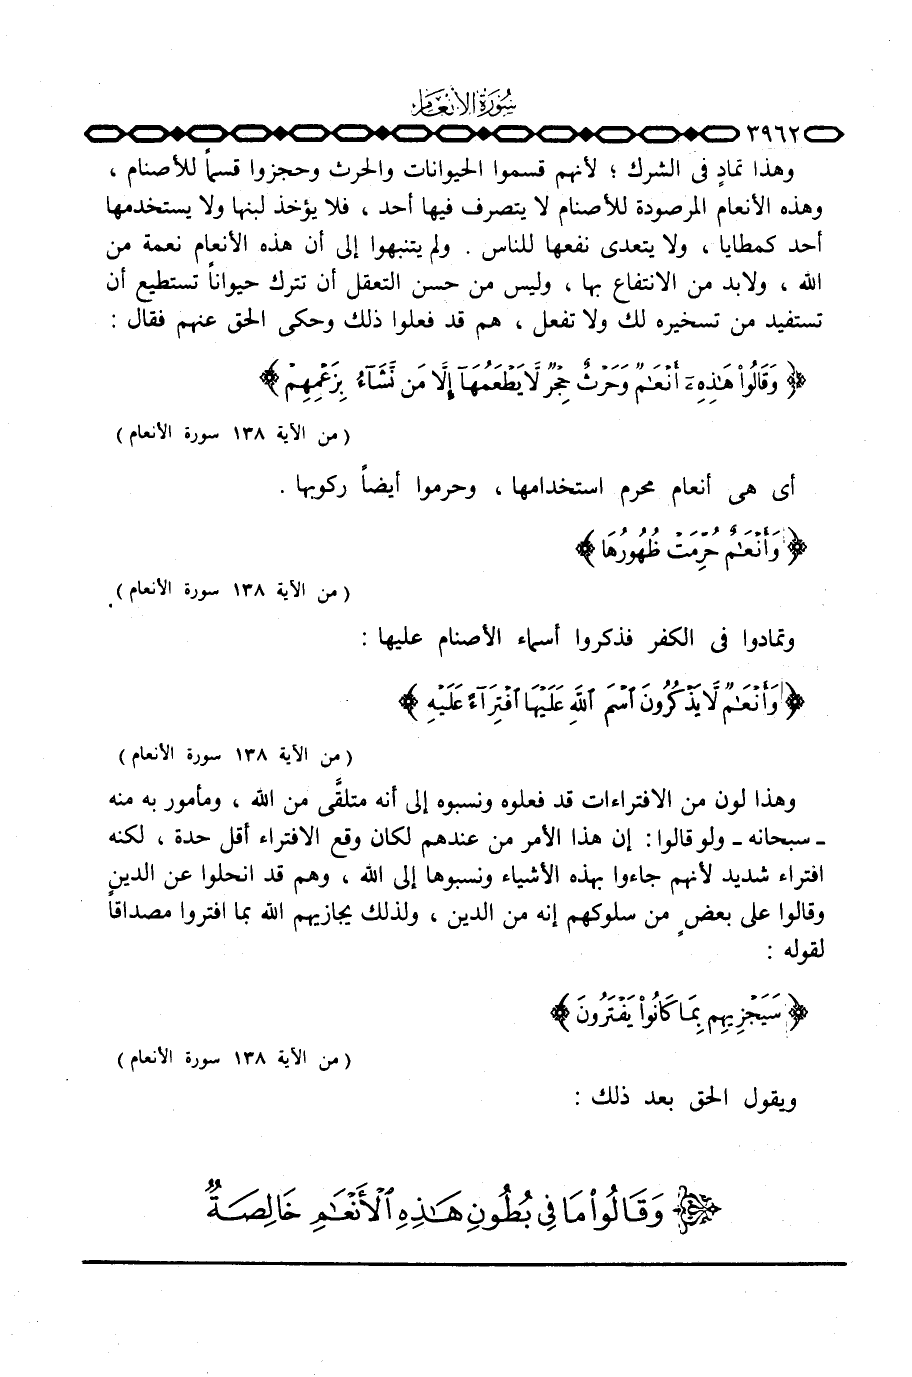 سُورَةُ الأَنعَام
٣٩٦٢
وهذا تمادٍ فى الشرك ؛ لأنهم قسموا الحيوانات والحرث وحجزوا قسماً للأصنام ،
وهذه الأنعام المرصودة للأصنام لا يتصرف فيها أحد ، فلا يؤخذ لبنها ولا يستخدمها
أحد كمطايا ، ولا يتعدى نفعها للناس . ولم يتنبهوا إلى أن هذه الأنعام نعمة من
الله ، ولابد من الانتفاع بها ، وليس من حسن التعقل أن تترك حيواناً تستطيع أن
تستفيد من تسخيره لك ولا تفعل ، هم قد فعلوا ذلك وحكى الحق عنهم فقال :
﴿ وَقَالُوا۟ هَـٰذِهِۦٓ أَنْعَـٰمٌ وَحَرْثٌ حِجْرٌ لَّا يَطْعَمُهَآ إِلَّا مَن نَّشَآءُ بِزَعْمِهِمْ ﴾
( من الآية ١٣٨ سورة الأنعام )
أى هى أنعام محرم استخدامها ، وحرموا أيضاً ركوبها .
﴿ وَأَنْعَـٰمٌ حُرِّمَتْ ظُهُورُهَا ﴾
( من الآية ١٣٨ سورة الأنعام )
وتمادوا فى الكفر فذكروا أسماء الأصنام عليها :
﴿ وَأَنْعَـٰمٌ لَّا يَذْكُرُونَ ٱسْمَ ٱللَّهِ عَلَيْهَا ٱفْتِرَآءً عَلَيْهِ ﴾
( من الآية ١٣٨ سورة الأنعام )
وهذا لون من الافتراءات قد فعلوه ونسبوه إلى أنه متلقَّى من الله ، ومأمور به منه
ـ سبحانه ـ ولو قالوا : إن هذا الأمر من عندهم لكان وقع الافتراء أقل حدة ، لكنه
افتراء شديد لأنهم جاءوا بهذه الأشياء ونسبوها إلى الله ، وهم قد انحلوا عن الدين
وقالوا على بعضٍ من سلوكهم إنه من الدين ، ولذلك يجازيهم الله بما افتروا مصداقاً
لقوله :
﴿ سَيَجْزِيهِم بِمَا كَانُوا۟ يَفْتَرُونَ ﴾
( من الآية ١٣٨ سورة الأنعام )
ويقول الحق بعد ذلك :
﴿ وَقَالُوا۟ مَا فِى بُطُونِ هَـٰذِهِ ٱلْأَنْعَـٰمِ خَالِصَةٌ